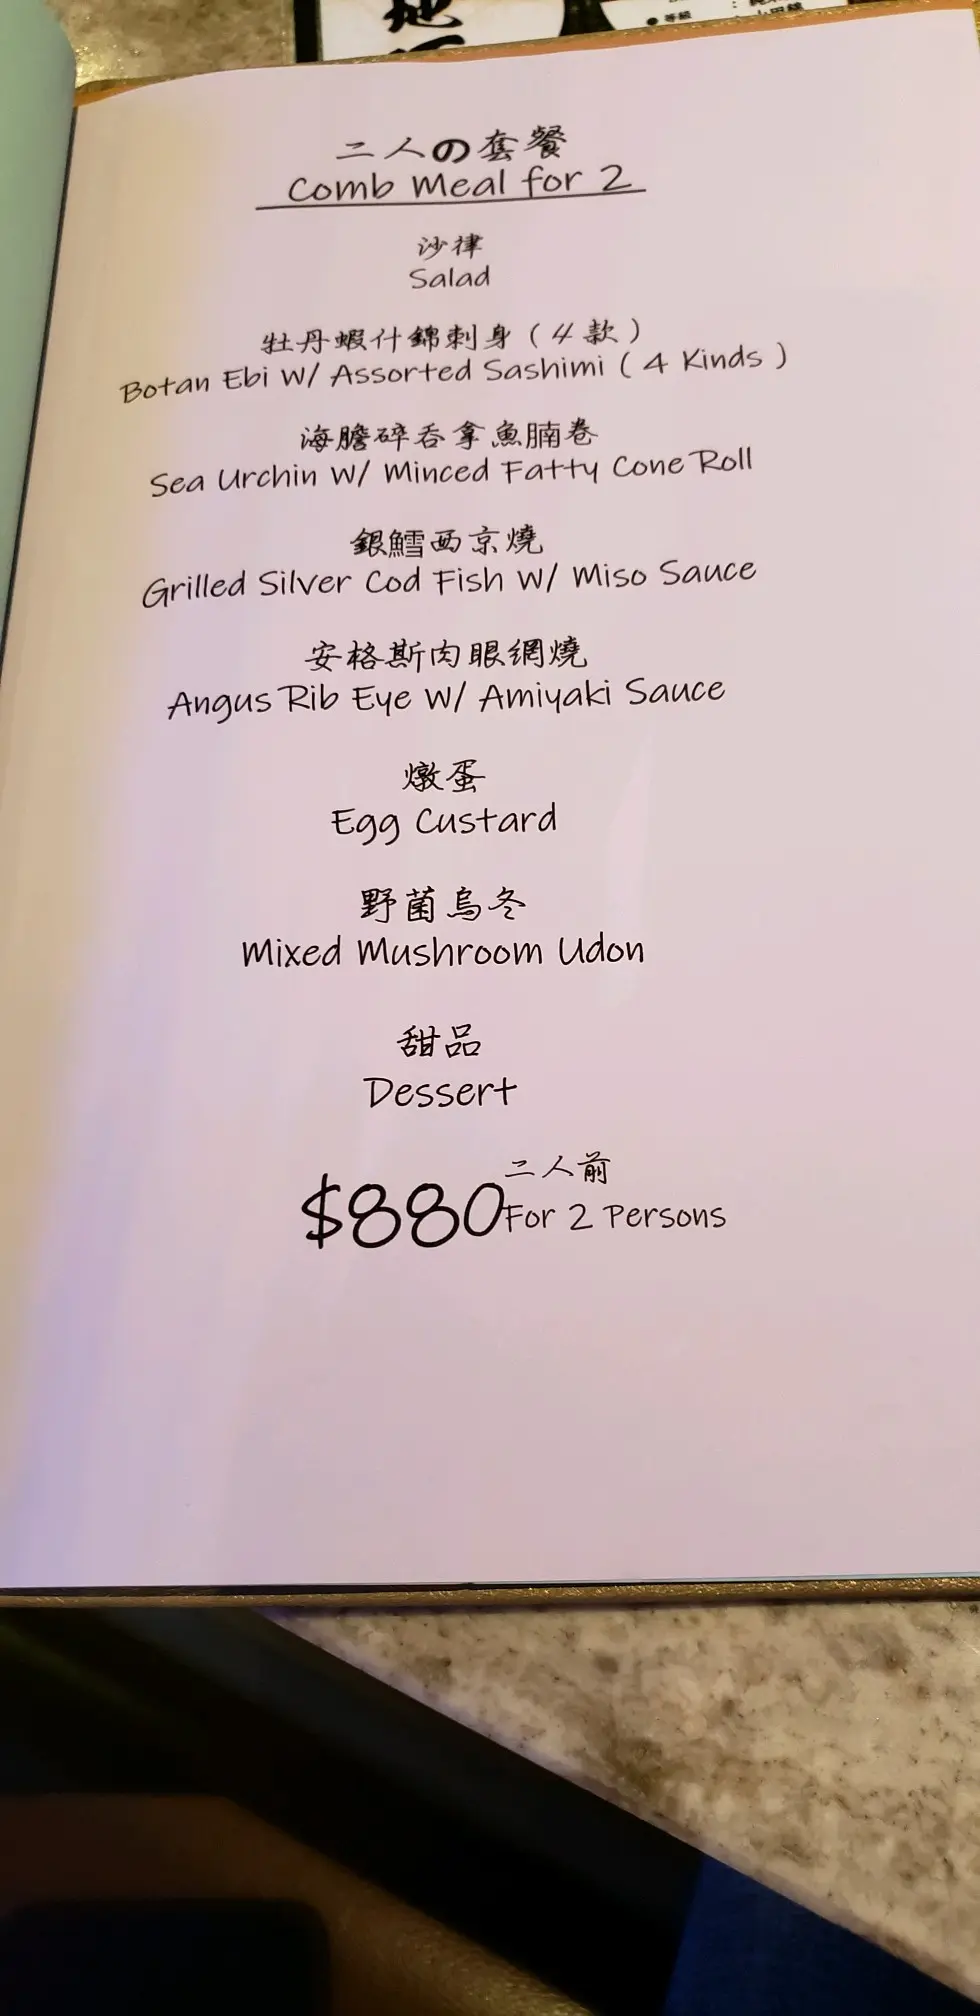 ● 等級
二人の套餐
Comb Meal for 2
沙律
Salad
牡丹蝦什錦刺身（4款）
Botan Ebi W/ Assorted Sashimi ( 4 Kinds )
海膽碎吞拿魚腩卷
Sea Urchin W/ Minced Fatty Cone Roll
銀鱈西京燒
Grilled Silver Cod Fish W/ Miso Sauce
安格斯肉眼網燒
Angus Rib Eye W/ Amiyaki Sauce
燉蛋
Egg Custard
野菌烏冬
Mixed Mushroom Udon
甜品
Dessert
二人前
$880 For 2 Persons